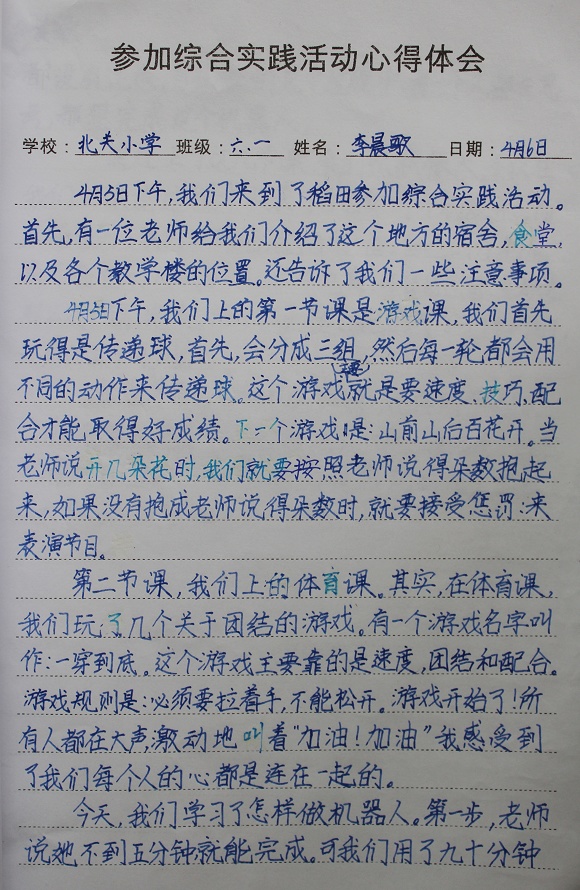 参加综合实践活动心得体会
学校：北关小学 班级：六.一 姓名：李晨歌 日期：4月6日
4月5日下午，我们来到了稻田参加综合实践活动。
首先，有一位老师给我们介绍了这个地方的宿舍，食堂，
以及各个教学楼的位置。还告诉了我们一些注意事项。
4月5日下午，我们上的第一节课是游戏课，我们首先
玩得是传递球，首先，会分成三组，然后每一轮都会用
不同的动作来传递球。这个游戏主要就是要速度、技巧、配
合才能取得好成绩。下一个游戏是：山前山后百花开。当
老师说开几朵花时，我们就要按照老师说得朵数抱起
来，如果没有抱成老师说得朵数时，就要接受惩罚：来
表演节目。
第二节课，我们上的体育课。其实，在体育课，
我们玩了几个关于团结的游戏。有一个游戏名字叫
作：一穿到底。这个游戏主要靠的是速度，团结和配合。
游戏规则是：必须要拉着手，不能松开。游戏开始了！所
有人都在大声，激动地叫着“加油！加油”我感受到
了我们每个人的心都是连在一起的。
今天，我们学习了怎样做机器人。第一步，老师
说她不到五分钟就能完成。可我们用了九十分钟